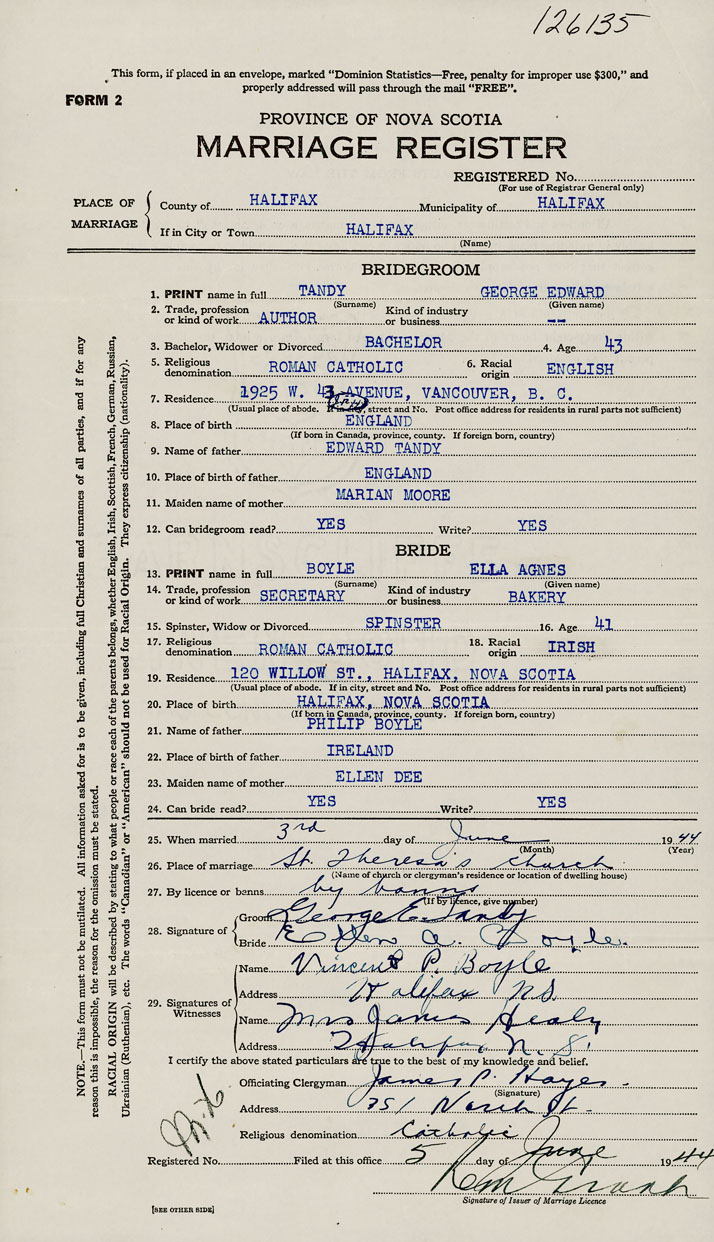 126135
This form, if placed in an envelope, marked “Dominion Statistics—Free, penalty for improper use $300,” and
properly addressed will pass through the mail “FREE”.
FORM 2
PROVINCE OF NOVA SCOTIA
MARRIAGE REGISTER
REGISTERED No.
(For use of Registrar General only)
PLACE OF MARRIAGE
County of HALIFAX Municipality of HALIFAX
If in City or Town HALIFAX
(Name)
BRIDEGROOM
1. PRINT name in full TANDY GEORGE EDWARD
(Surname) (Given name)
2. Trade, profession or kind of work AUTHOR Kind of industry or business --
3. Bachelor, Widower or Divorced BACHELOR 4. Age 43
5. Religious denomination ROMAN CATHOLIC 6. Racial origin ENGLISH
7. Residence 1925 W. 43 AVENUE, VANCOUVER, B. C.
(Usual place of abode. If in city, street and No. Post office address for residents in rural parts not sufficient)
8. Place of birth ENGLAND
(If born in Canada, province, county. If foreign born, country)
9. Name of father EDWARD TANDY
10. Place of birth of father ENGLAND
11. Maiden name of mother MARIAN MOORE
12. Can bridegroom read? YES Write? YES
BRIDE
13. PRINT name in full BOYLE ELLA AGNES
(Surname) (Given name)
14. Trade, profession or kind of work SECRETARY Kind of industry or business BAKERY
15. Spinster, Widow or Divorced SPINSTER 16. Age 41
17. Religious denomination ROMAN CATHOLIC 18. Racial origin IRISH
19. Residence 120 WILLOW ST., HALIFAX, NOVA SCOTIA
(Usual place of abode. If in city, street and No. Post office address for residents in rural parts not sufficient)
20. Place of birth HALIFAX, NOVA SCOTIA
(If born in Canada, province, county. If foreign born, country)
21. Name of father PHILIP BOYLE
22. Place of birth of father IRELAND
23. Maiden name of mother ELLEN DEE
24. Can bride read? YES Write? YES
25. When married 3rd day of June 1944
(Month) (Year)
26. Place of marriage St. Theresa's Church
(Name of church or clergyman's residence or location of dwelling house)
27. By licence or banns by banns
(If by licence, give number)
28. Signature of
Groom George E. Tandy
Bride Ellen A. Boyle.
29. Signatures of Witnesses
Name Vincent P. Boyle
Address Halifax N.S.
Name Mrs James Healy
Address Halifax N. S.
I certify the above stated particulars are true to the best of my knowledge and belief.
Officiating Clergyman James P. Hayes.
(Signature)
Address 351 North St.
Religious denomination Catholic
Registered No. Filed at this office 5 day of June 1944
Signature of Issuer of Marriage Licence
[SEE OTHER SIDE]
NOTE.—This form must not be mutilated. All information asked for is to be given, including full Christian and surnames of all parties, and if for any
reason this is impossible, the reason for the omission must be stated.
RACIAL ORIGIN will be described by stating to what people or race each of the parents belongs, whether English, Irish, Scottish, French, German, Russian,
Ukrainian (Ruthenian), etc. The words “Canadian” or “American” should not be used for Racial Origin. They express citizenship (nationality).